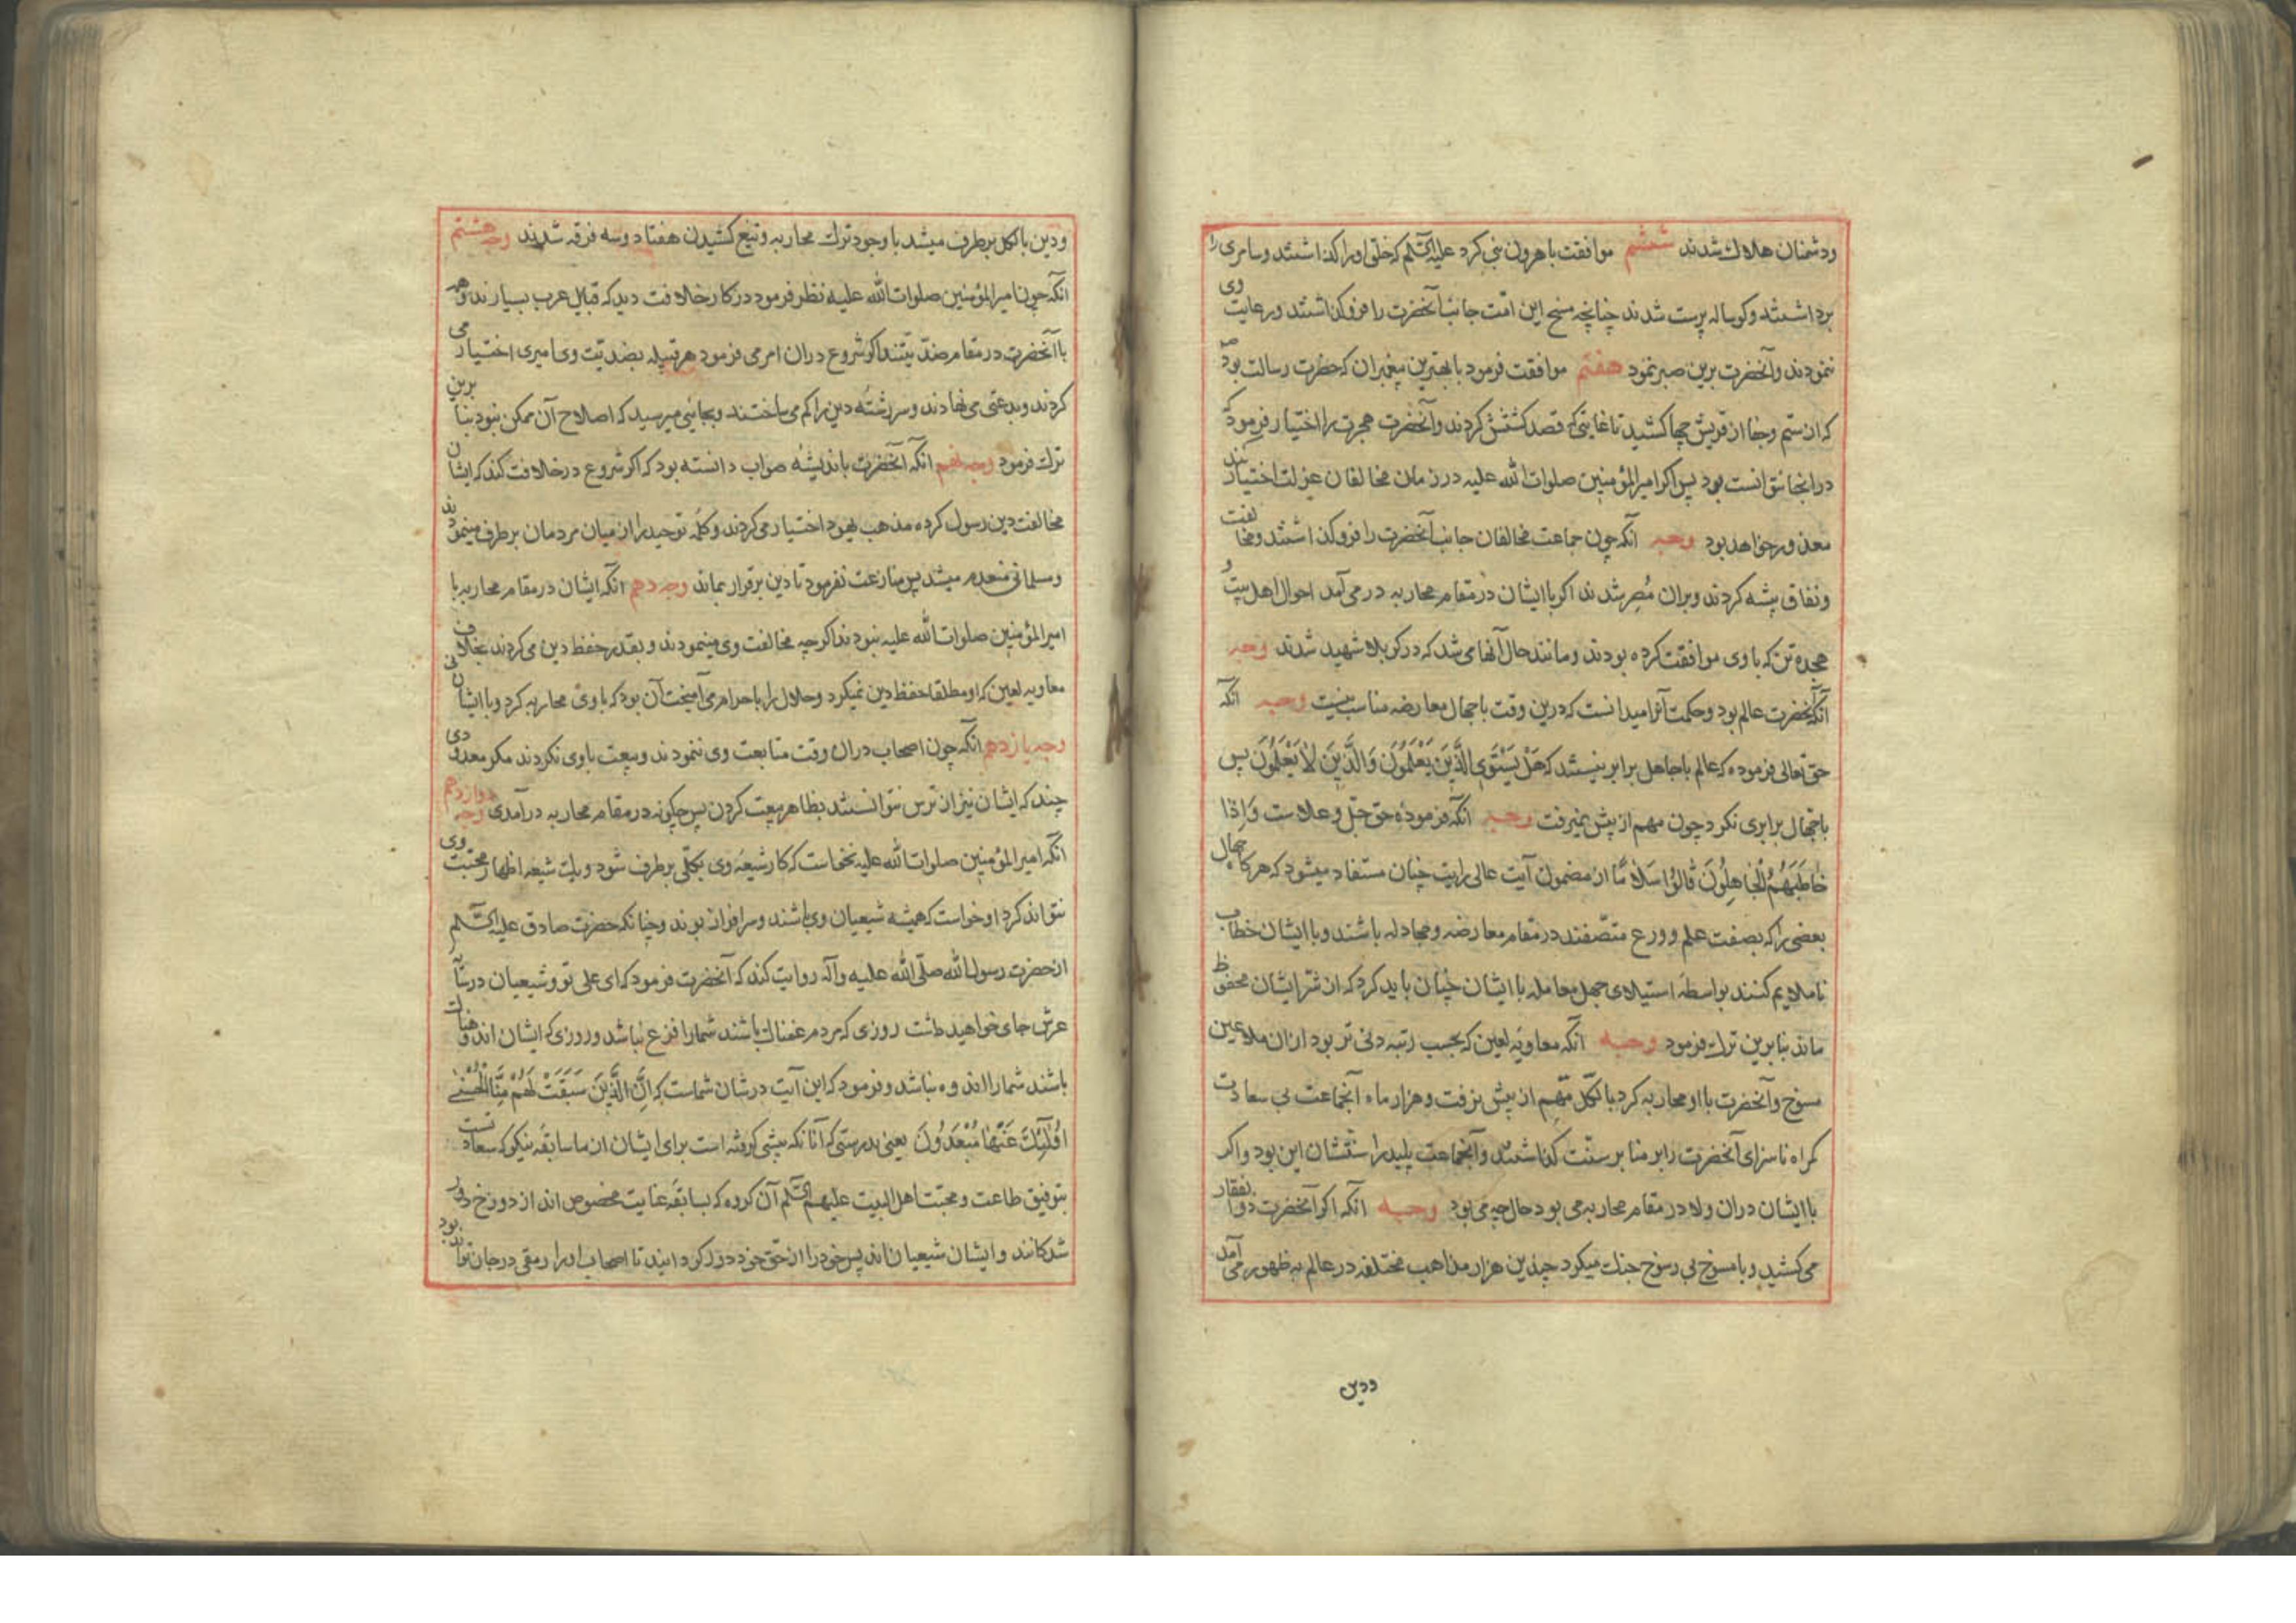 ودشمنان هلاك شدند ششم موافقت با هرون نبی کرد علیه السّلم که خلق او را کذاشتند وسامری را
برداشتند وکوساله پرست شدند چنانچه مسخ این امّت جانب آنحضرت را فروکذاشتند ورعایت وی
ننمودند وآنحضرت برین صبر نمود هفتم موافقت فرمود با بهترین پیغمبران که حضرت رسالت بود ص
که از ستم وجفا از قریش چها کشید تا غایتی که قصد کشتنش کردند وآنحضرت هجرت را اختیار فرمود که
در انجا نتوانست بود پس اکر امیر المؤمنین صلوات الله علیه در زمان مخالفان عزلت اختیار کند
معذور خواهد بود وجه آنکه چون جماعت مخالفان جانب آنحضرت را فروکذاشتند ومخالفت
ونفاق پیشه کردند وبران مُصِر شدند اکر با ایشان در مقام محاربه در می آمد احوال اهل بیت و
هجده تن که با وی موافقت کرده بودند ومانند حال آنها می شد که در کربلا شهید شدند وجه
آنکه آنحضرت عالم بود وحکمت آنرا میدانست که درین وقت با جهال معارضه مناسب نیست وجه انکه
حق تعالی فرموده که عالم با جاهل برابر نیستند که هَلْ یَسْتَوِی الَّذِینَ یَعْلَمُونَ وَالَّذِینَ لاٰ یَعْلَمُونَ پس
با جهال برابری نکرد چون مهم از پیش نمیرفت وجه انکه فرمودهٔ حق جلّ وعلاست وَاِذا
خاطَبَهُمُ الْجاهِلُونَ قالُوا سَلاٰمًا از مضمون آیت عالی رایت چنان مستفاد میشود که هرکاه جهال
بعضی را که بصفت علم وورع متصّفند در مقام معارضه ومجادله باشند وبا ایشان خطاب
ناملایم کنند بواسطهٔ استیلای جهل معامله با ایشان چنان باید کرد که از شرّ ایشان محفوظ
ماند بنابرین ترك فرمود وجه آنکه معاویه لعین که بحسب رتبه دنی تر بود ازان ملاعین
مسوخ وآنحضرت با او محاربه کرد بالکل مهم از پیش نرفت وهزار ماه آنجماعت بی سعادت
کمراه ناسزای آنحضرت را بر منابر سنّت کذاشتند وآنجماعت پلید را سنّتشان این بود واکر
با ایشان دران ولا در مقام محاربه می بود حال چه می بود وجه انکه اکر آنحضرت ذوالفقار
می کشید وبا مسوخ بی رسوخ جنك میکرد چندین هزار مذاهب مختلفه در عالم به ظهور می آمد
ودین
ودین بالکل برطرف میشد با وجود ترك محاربه وتیغ کشیدن هفتاد وسه فرقه شدند وجه هشتم
انکه چون امیر المؤمنین صلوات الله علیه نظر فرمود در کار خلافت دید که قبایل عرب بسیارند وهمه
با آنحضرت در مقام ضدّیتند اکر شروع دران امر می فرمود هر قبیله بضدیّت وی امیری اختیار می
کردند وبدعتی می نهادند وسررشته دین را کم می ساختند وبجائی میرسید که اصلاح آن ممکن نبود بنابرین
ترك فرمود وجه نهم انکه آنحضرت باندیشهٔ صواب دانسته بود که اکر شروع در خلافت کند که ایشان
مخالفت دین رسول کرده مذهب یهود اختیار می کردند وکلمه توحید را از میان مردمان برطرف مینمودند
ومسلمانی منعدم میشد پس منازعت نفرمود تا دین برقرار بماند وجه دهم انکه ایشان در مقام محاربه با
امیر المؤمنین صلوات الله علیه نبودند اکرچه مخالفت وی مینمودند وبقدر حفظ دین می کردند بخلاف
معاویه لعین که او مطلقا حفظ دین نمیکرد وحلال را با حرام می آمیخت آن بود که با وی محاربه کرد وبا ایشان نی
وجه یازدهم انکه چون اصحاب دران وقت متابعت وی ننمودند وبیعت با وی نکردند مکر معدودی
چند که ایشان نیز از ترس نتوانستند بظاهر بیعت کردن پس چکونه در مقام محاربه درآمدی وجه دوازدهم
انکه امیر المؤمنین صلوات الله علیه نخواست که کار شیعهٔ وی بکلّی برطرف شود ویك شیعه اظهار محبّت وی
نتواند کرد او خواست که همیشه شیعیان وی باشند وسرافراز بوند وچنانکه حضرت صادق علیه السّلم
از حضرت رسول الله صلّی الله علیه وآله روایت کند که آنحضرت فرمود که ای علی تو وشیعیان در سآ
عرش جای خواهید داشت روزی که مردم غمناك باشند شما را فزع نباشد وروزی که ایشان اندوهناك
باشند شما را اندوه نباشد وفرمود که این آیت در شان شماست که اِنَّ الَّذِینَ سَبَقَتْ لَهُمْ مِنَّا الْحُسْنٰی
اُولٰئِكَ عَنْهٰا مُبْعَدُونَ یعنی بدرستی که آنانکه پیشی کرفته است برای ایشان از ما سابقه نیکو که سعادتست
بتوفیق طاعت ومحبّت اهل البیت علیهم السّلم آن کروه که بسابقهٔ عنایت مخصوص اند از دوزخ دور
شدکانند وایشان شیعیان اند پس خود را از حق خود دور کردانید تا اصحاب او را رمقی در جان تواند بود